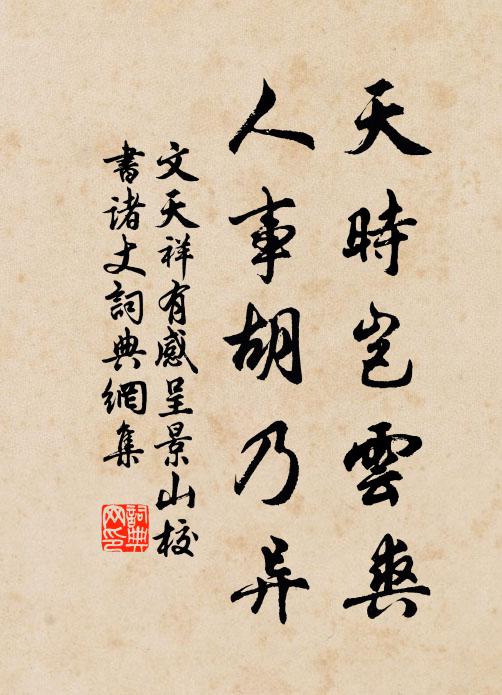 天時岂雲爽
人事胡乃异
文天祥有感呈景山校
書诸丈詞典網集
詞典网印